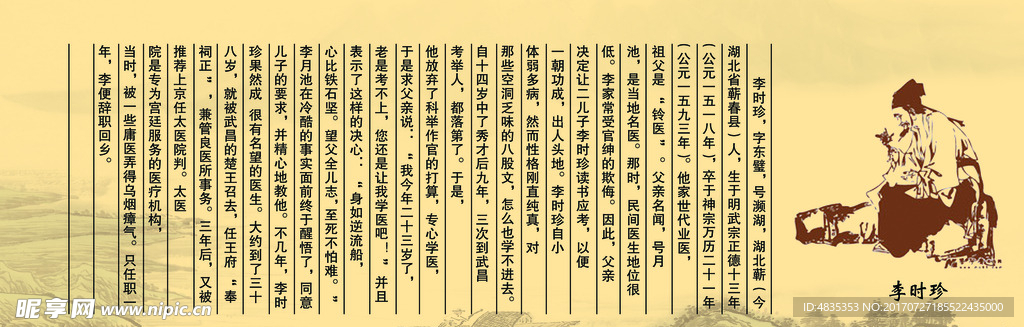 李时珍，字东璧，号濒湖，湖北蕲（今
湖北省蕲春县）人，生于明武宗正德十三年
（公元一五一八年），卒于神宗万历二十一年
（公元一五九三年）。他家世代业医，
祖父是“铃医”。父亲名闻，号月
池，是当地名医。那时，民间医生地位很
低。李家常受官绅的欺侮。因此，父亲
决定让二儿子李时珍读书应考，以便
一朝功成，出人头地。李时珍自小
体弱多病，然而性格刚直纯真，对
那些空洞乏味的八股文，怎么也学不进去。
自十四岁中了秀才后九年，三次到武昌
考举人，都落第了。于是，
他放弃了科举作官的打算，专心学医，
于是求父亲说：“我今年二十三岁了，
老是考不上，您还是让我学医吧！”并且
表示了这样的决心：“身如逆流船，
心比铁石坚。望父全儿志，至死不怕难。”
李月池在冷酷的事实面前终于醒悟了，同意
儿子的要求，并精心地教他。不几年，李时
珍果然成 很有名望的医生。大约到了三十
八岁，就被武昌的楚王召去，任王府“奉
祠正”，兼管良医所事务。三年后，又被
推荐上京任太医院判。太医
院是专为宫廷服务的医疗机构，
当时，被一些庸医弄得乌烟瘴气。只任职一
年，李便辞职回乡。
李时珍
昵享网 www.nipic.cn
ID:4835353 NO:20170727185522435000